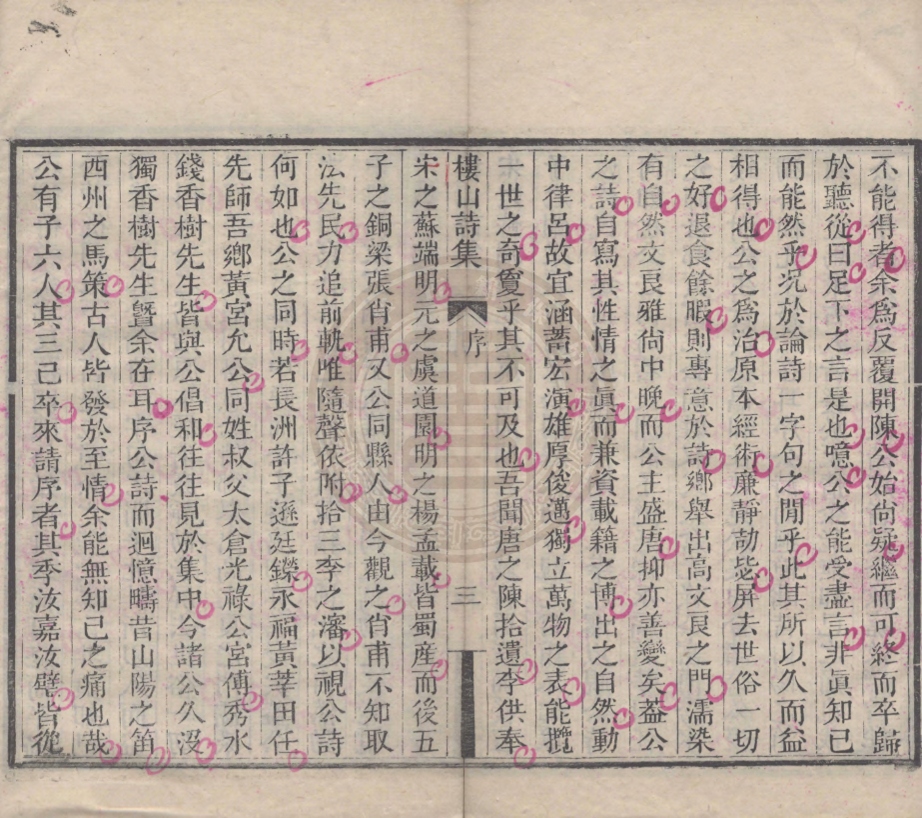 不能得者余爲反覆開陳公始尙疑繼而可終而卒歸
於聽從曰足下之言是也噫公之能受盡言非眞知已
而能然乎况於論詩一字句之閒乎此其所以久而益
相得也公之爲治原本經術廉靜劼毖屏去世俗一切
之好退食餘暇則專意於詩鄉舉出高文良之門濡染
有自然文良雅尙中晚而公主盛唐抑亦善變矣葢公
之詩自寫其性情之眞而兼資載籍之博出之自然動
中律呂故宜涵蓄宏演雄厚俊邁獨立萬物之表能攬
一世之奇夐乎其不可及也吾聞唐之陳拾遺李供奉
樓山詩集 序 三
宋之蘇端明元之虞道園明之楊孟載皆蜀産而後五
子之銅梁張肖甫又公同縣人由今觀之肖甫不知取
法先民力追前軌唯隨聲依附拾三李之瀋以視公詩
何如也公之同時若長洲許子遜廷鑅永福黃莘田任
先師吾鄉黃宮允公同姓叔父太倉光祿公宮傅秀水
錢香樹先生皆與公倡和往往見於集中今諸公久沒
獨香樹先生曁余在耳序公詩而迴憶疇昔山陽之笛
西州之馬策古人皆發於至情余能無知已之痛也哉
公有子六人其三已卒來請序者其季汝嘉汝璧皆從